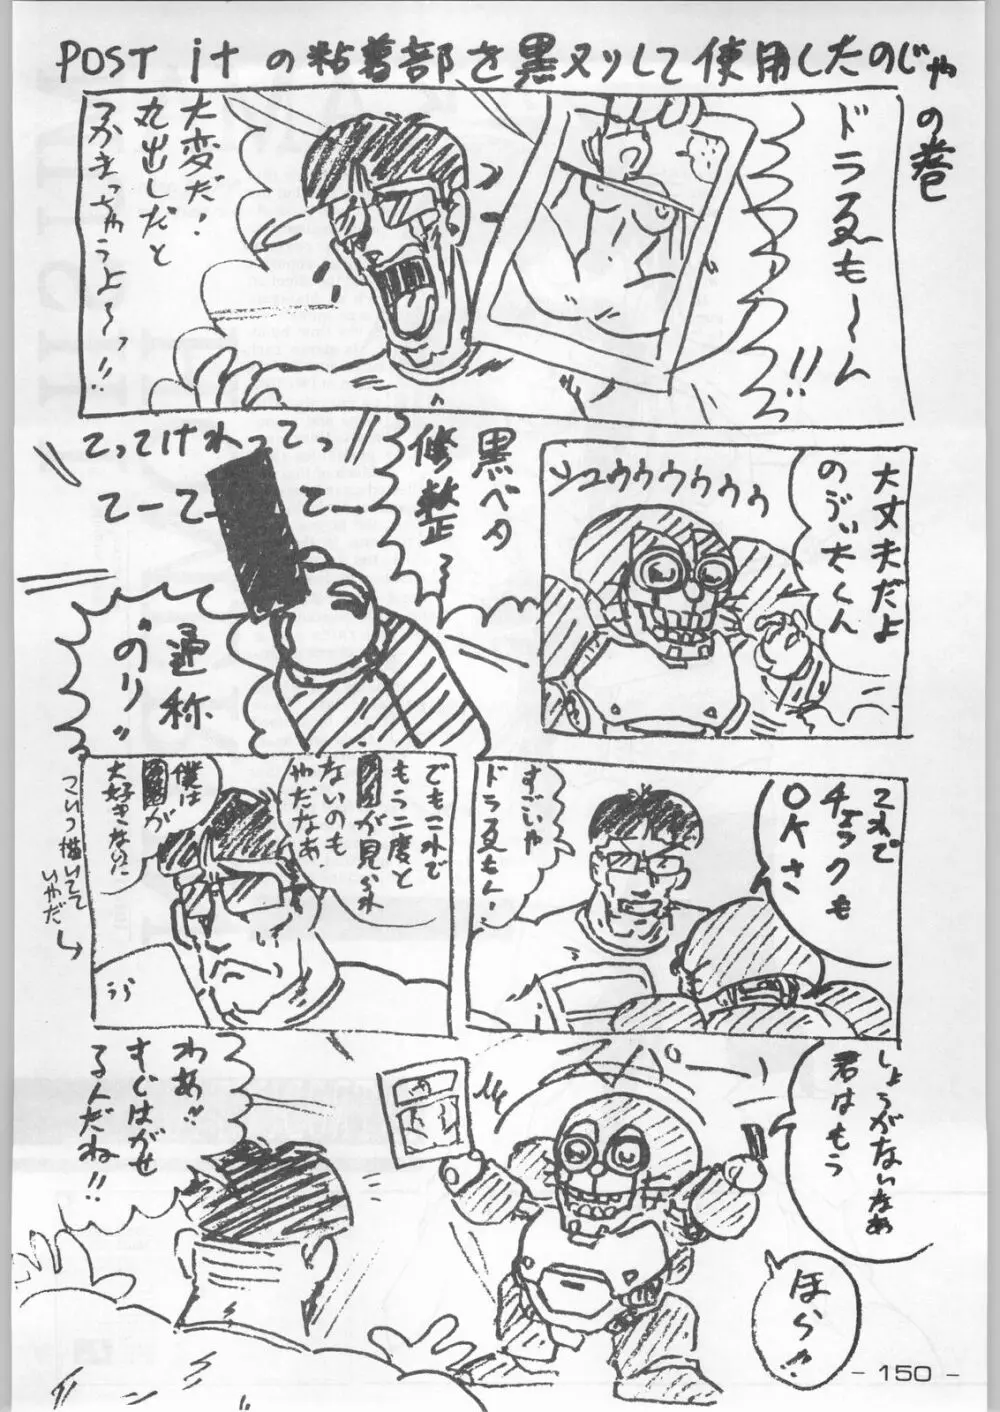 POST itの粘着部を黒ヌリして使用したのじゃ
の巻
ドラゑも〜ん!!
大変だ!
丸出しだと
つかまっちゃうよ〜っ!!
大丈夫だよ
のび太くん
シュゥゥゥゥゥゥ
黒ベタ
修整〜
てってけれってっ
てーてーてー
通称
"のり"
これで
チェックも
OKさ
すごいや
ドラゑもん
でもこれで
もう二度と
が見られ
ないのも
やだなあ
僕は
が
大好きなのに
こいつ描いてて
いやだ
しょうがないなあ
君はもう
ほら
スパーン
わあ
すぐはがせ
るんだね!!
- 150 -